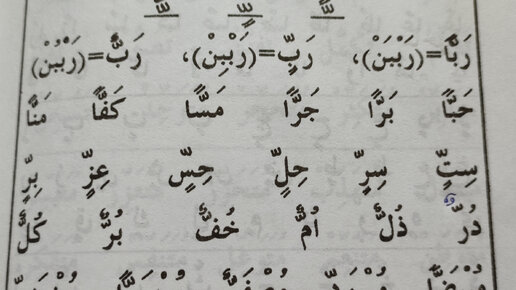 ـًّـ ـٍّـ ـٌّـ
رَبًّا=(رَبْبَنْ)، رَبٍّ=(رَبْبِنْ)، رَبٌّ=(رَبْبُنْ)
حَبًّا بَرًّا جَرًّا مَسًّا كَفًّا مَنًّا
سِتٍّ سِرٍّ حِلٍّ حِسٍّ عِزٍّ بِرٍّ
دُرٌّ ذُلٌّ اُمٌّ خُفٌّ بُرٌّ كُلٌّ